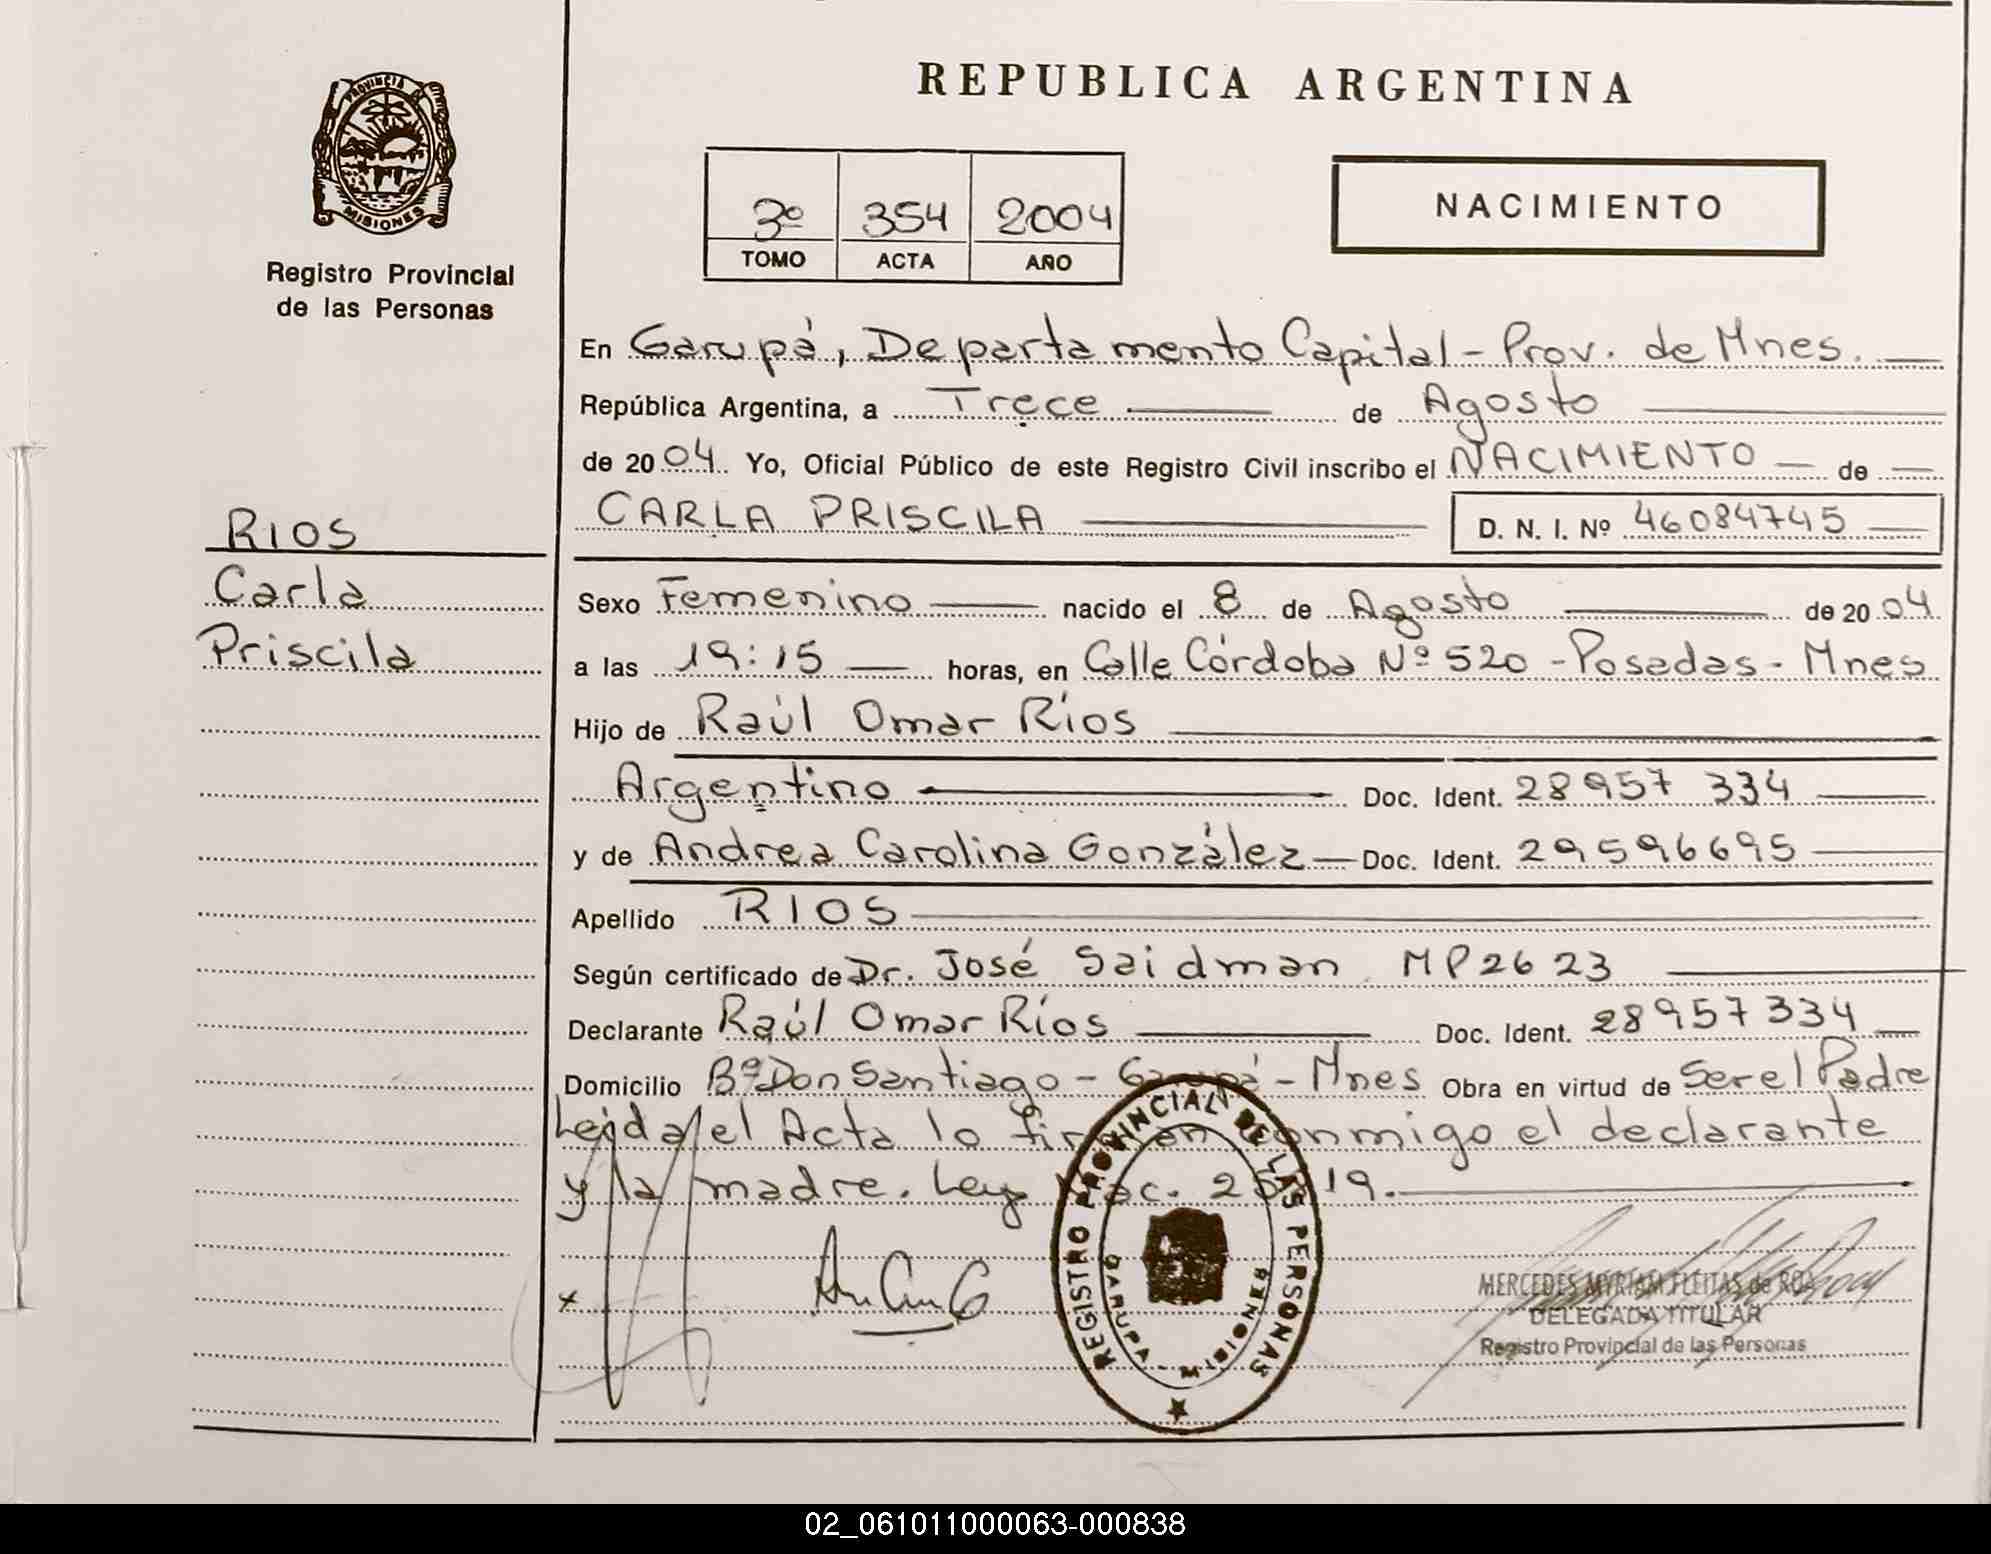 PROVINCIA DE
MISIONES
Registro Provincial
de las Personas
REPUBLICA ARGENTINA
3º 354 2004
TOMO ACTA AÑO
NACIMIENTO
En Garupá, Departamento Capital - Prov. de Mnes.
República Argentina, a Trece de Agosto
de 2004 Yo, Oficial Público de este Registro Civil inscribo el NACIMIENTO de
CARLA PRISCILA D. N. I. Nº 46084745
RIOS
Carla
Priscila
Sexo Femenino nacido el 8 de Agosto de 2004
a las 19:15 horas, en Calle Córdoba Nº 520 - Posadas - Mnes
Hijo de Raúl Omar Ríos
Argentino Doc. Ident. 28957 334
y de Andrea Carolina González Doc. Ident. 29596695
Apellido RIOS
Según certificado de Dr. José Saidman MP2623
Declarante Raúl Omar Ríos Doc. Ident. 28957334
Domicilio Bº Don Santiago - Garupá - Mnes Obra en virtud de Ser el Padre
Leída el Acta lo firman conmigo el declarante
y la madre. Ley Nac.
REGISTRO PROVINCIAL DE LAS PERSONAS
GARUPA - MISIONES
MERCEDES MYRIAM FLEITAS de
DELEGADA TITULAR
Registro Provincial de las Personas
02_061011000063-000838